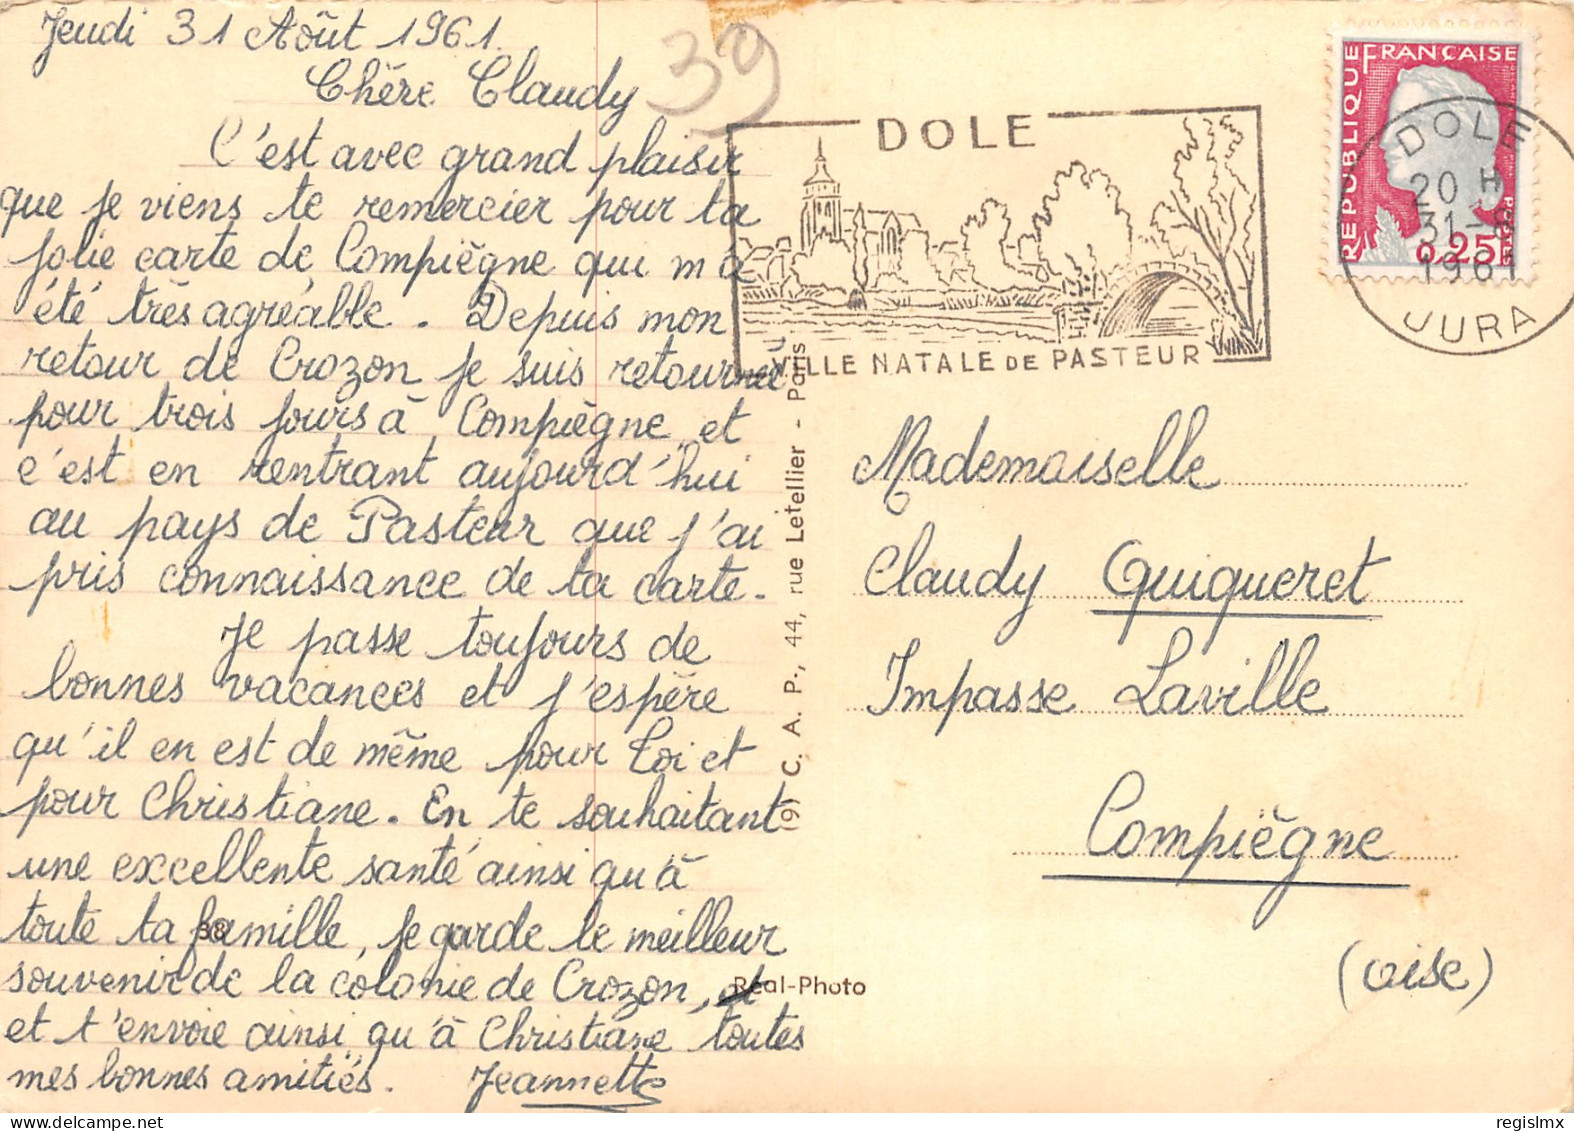 Jeudi 31 Août 1961.
Chère Claudy
C'est avec grand plaisir
que je viens te remercier pour ta
jolie carte de Compiègne qui m'a
été très agréable. Depuis mon
retour de Crozon je suis retournée
pour trois jours à Compiègne et
c'est en rentrant aujourd'hui
au pays de Pasteur que j'ai
pris connaissance de ta carte.
Je passe toujours de
bonnes vacances et j'espère
qu'il en est de même pour toi et
pour Christiane. En te souhaitant
une excellente santé ainsi qu'à
toute ta famille, je garde le meilleur
souvenir de la colonie de Crozon,
et t'envoie ainsi qu'à Christiane toutes
mes bonnes amitiés. Jeannette
39
38
(9) C. A. P., 44, rue Letellier - Paris
Réal-Photo
DOLE
VILLE NATALE DE PASTEUR
REPUBLIQUE FRANÇAISE
0,25
DOLE
20 H
31-8
1961
JURA
Mademoiselle
Claudy Quiqueret
Impasse Laville
Compiègne
(Oise)
regislmx
www.delcampe.net